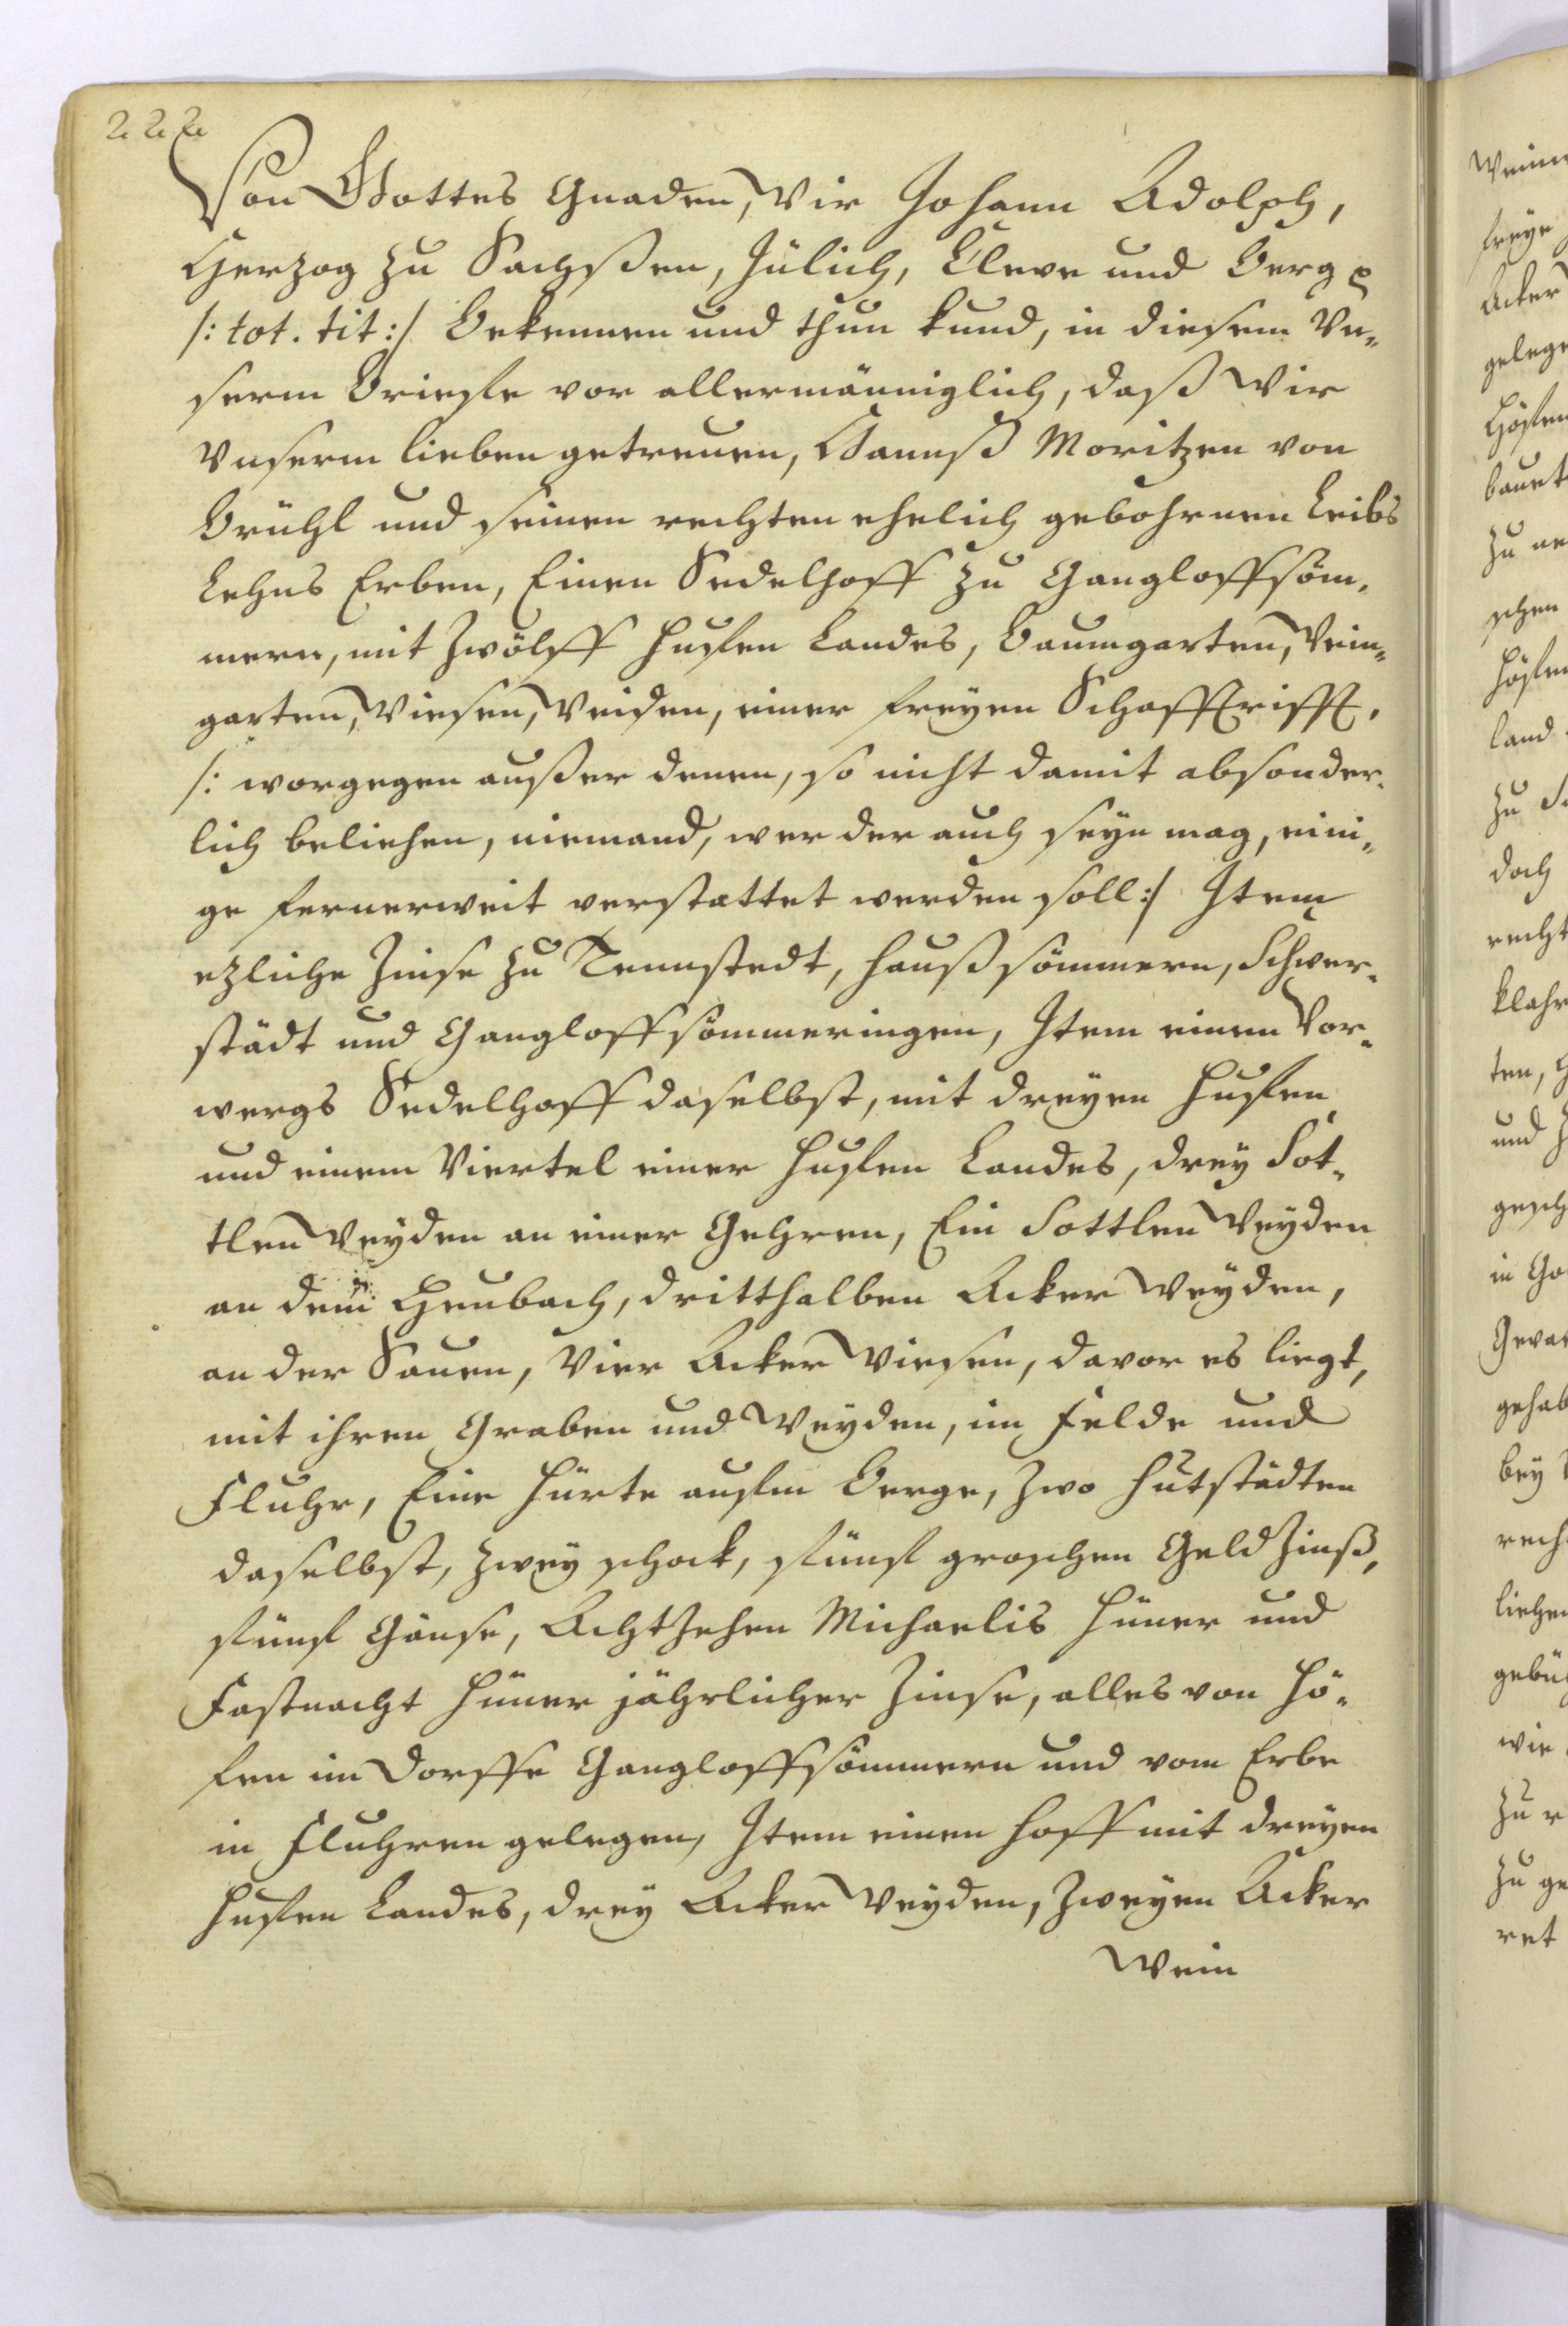 222
Von Gottes Gnaden, Wir Johann Adolph,
Herzog zu Sachßen, Jülich, Cleve und Berg
/: tot. tit :/ Bekennen und thun kund, in diesem Un-
serm Brieffe vor allermänniglich, daß Wir
Unserm lieben getreuen, Hannß Moritzen von
Brühl und seinen rechten ehelich gebohrnen Leibs
Lehns Erben, Einen Sedelhoff zu Gangloffsöm-
mern, mit Zwölff Huffen Landes, Baumgarten, Wein-
garten, Wiesen, Weiden, einer freyen Schafftrifft,
/: worgegen außer denen, so nicht damit absonder-
lich beliehen, niemand, wer der auch seyn mag, eini-
ge fernerweit verstattet werden soll :/ Item
ezliche Zinse zu Tennstedt, Haußsömmern, Schwer-
städt und Gangloffsömmeringen, Item einen Vor-
wergs Sedelhoff daselbst, mit dreyen Huffen
und einem Viertel einer Huffen Landes, drey Sot-
tlen Weyden an einer Gehren, Ein Sottlen Weyden
an dem Heubach, dritthalben Acker Weyden,
an der Sauen, Vier Acker Wiesen, davor es liegt,
mit ihren Graben und Weyden, im Felde und
Fluhr, Eine Hürte auffm Berge, Zwo Hutstädten
daselbst, zwey schock, fünff groschen Geld Zinß,
fünff Gänse, Achtzehen Michaelis Hüner und
Fastnacht Hüner jährlicher Zinse, alles von Hö-
fen im Dorffe Gangloffsömmern und vom Erbe
in Fluhren gelegen, Item einen Hoff mit dreyen
Huffen Landes, drey Acker Weyden, Zweyen Acker
Wein